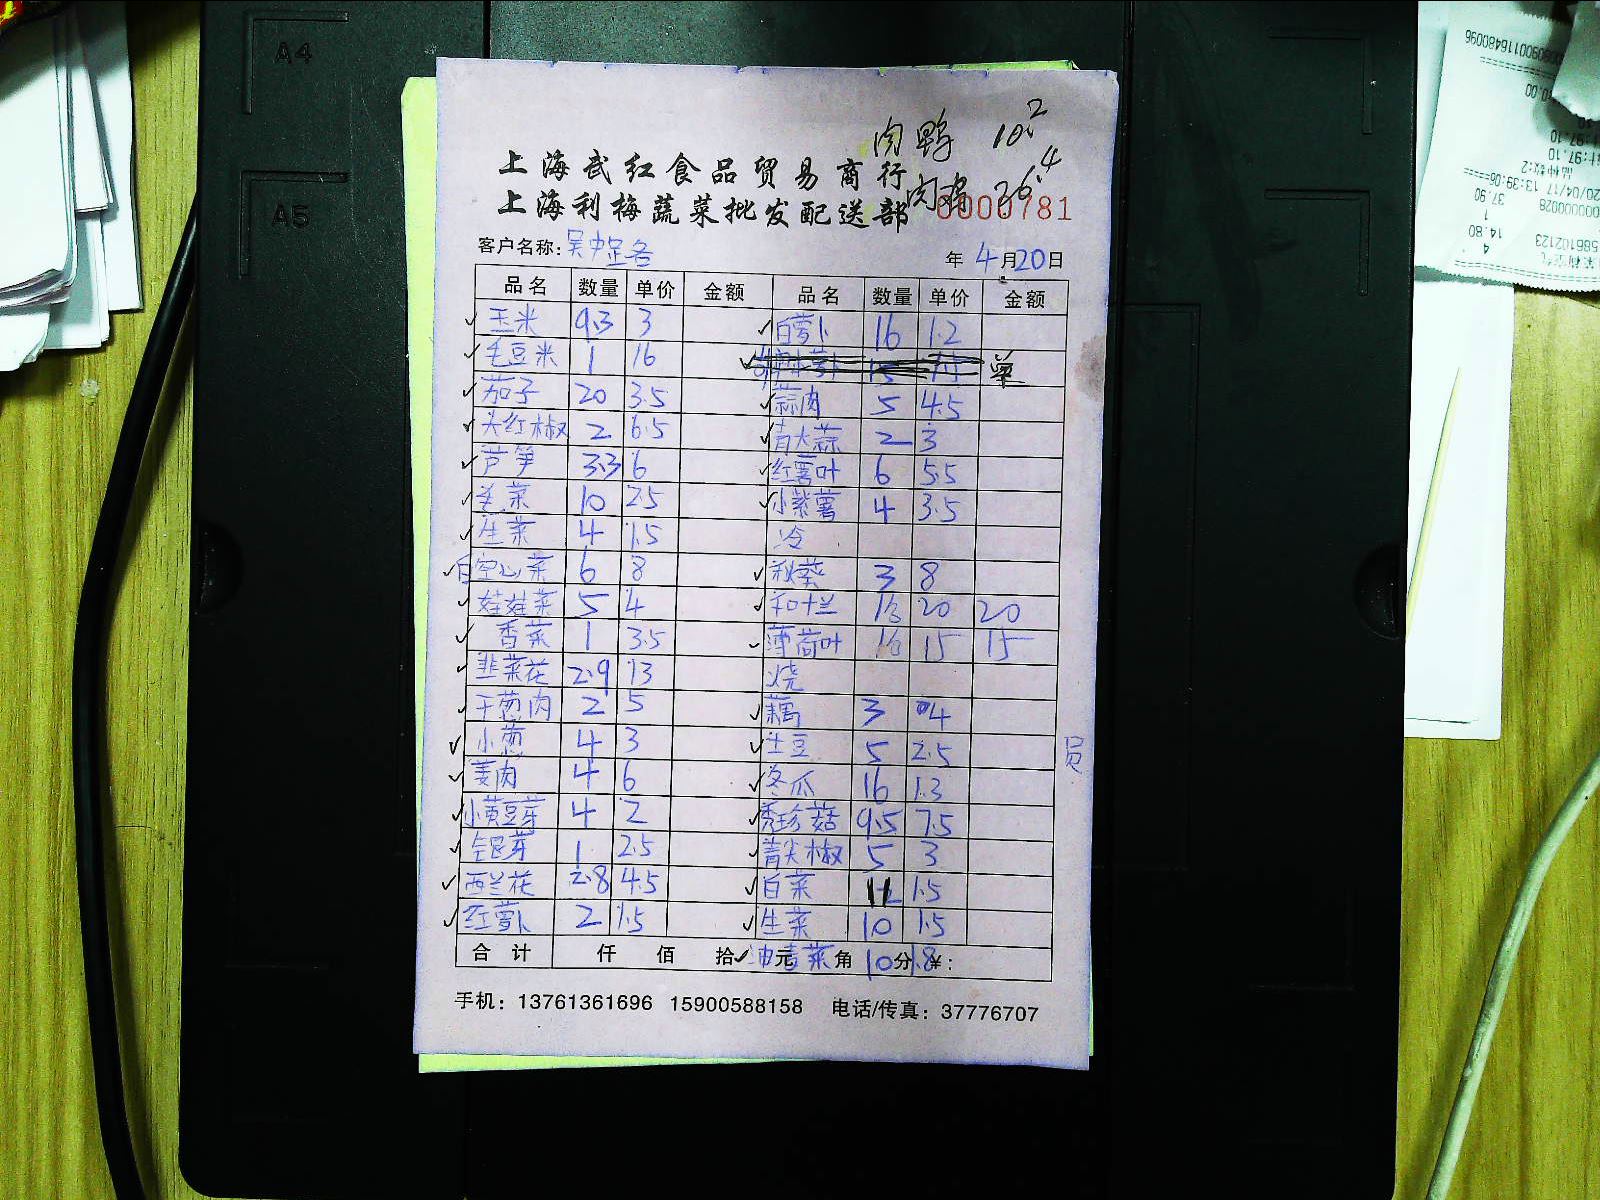 A4
A5
肉鸭 10.2
肉鸡 36.4
上海武红食品贸易商行
上海利梅蔬菜批发配送部
0000781
客户名称:
年 4月20日
品名 数量 单价 金额 品名 数量 单价 金额
玉米 9.3 3 白萝卜 16 1.2
毛豆米 1 16
茄子 20 3.5 蒜肉 5 4.5
尖红椒 2 6.5 青大蒜 2 3
芦笋 3.3 6 红薯叶 6 5.5
生菜 10 2.5 小紫薯 4 3.5
生菜 4 1.5 冷
白空心菜 6 8 秋葵 3 8
娃娃菜 5 4 20 20
香菜 1 3.5 薄荷叶 15 15
韭菜花 2.9 13 烧
干葱肉 2 5 藕 3 4
小葱 4 3 土豆 5 2.5
姜肉 4 6 冬瓜 16 1.3
小黄豆芽 4 2 秀珍菇 9.5 7.5
银芽 1 2.5 青尖椒 5 3
西兰花 2.8 4.5 白菜 1.5
红萝卜 2 1.5 生菜 10 1.5
合计 仟 佰 拾 元 角 分 ¥:
油麦菜 10 1.8
手机: 13761361696 15900588158 电话/传真: 37776707
员